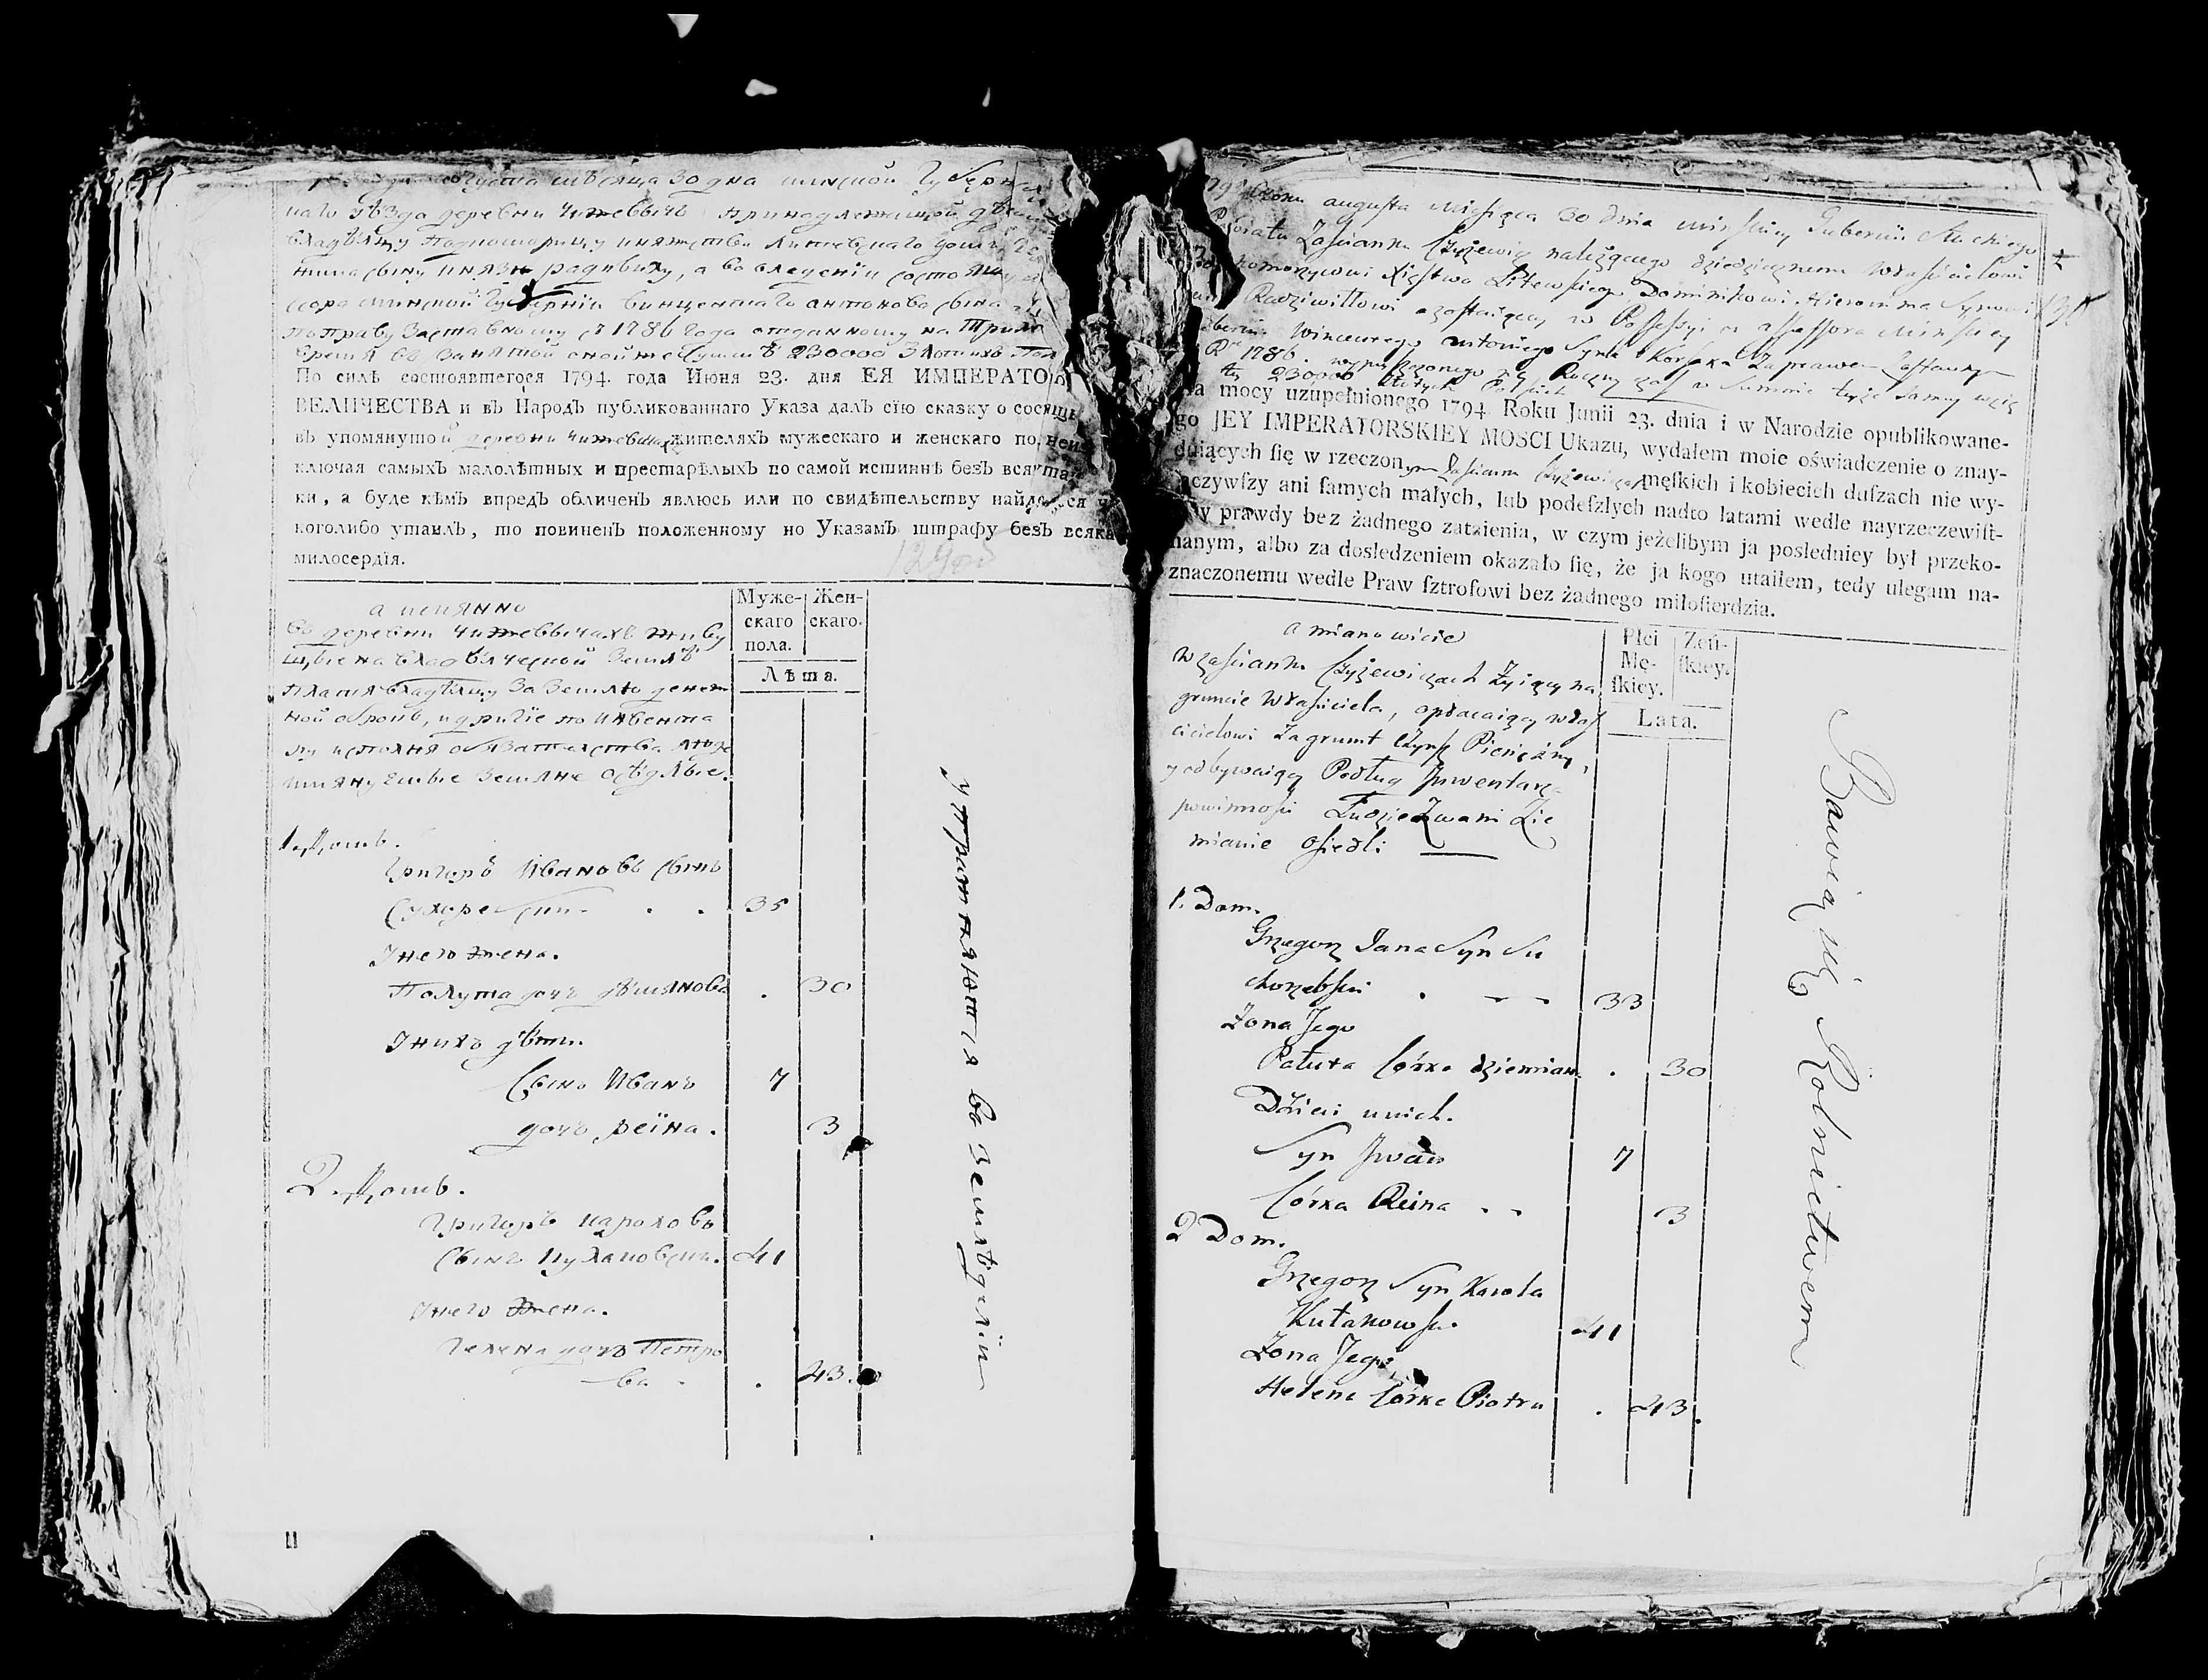 августа мѣсяца 30 дна минской Губерн
наго уѣзда деревни Чижевычъ принадлежащой
владѣлцу подкоморицу княжства литевскаго
сыну князю радивилу, а во владении
минской Губернии винцентаго антонова сына
по праву заставному с 1786 года отданному на
время въ занятой 230000 злотихъ
По силѣ состоявшегося 1794. года Июня 23. дня ЕЯ ИМПЕРАТО
ВЕЛИЧЕСТВА и въ Народъ публикованнаго Указа далъ сїю сказку о
въ упомянутой деревни жителяхъ мужескаго и женскаго по,
ключая самыхъ малолѣтныхъ и престарѣлыхъ по самой истиннѣ безъ
ки, а буде кѣмъ впредъ обличенъ явлюсь или по свидѣтельству
коголибо утаилъ, то повиненъ положенному по Указамъ штрафу безъ всяка
милосердїя.
а имянно
Муже-скаго пола. Жен-скаго.
Лѣта.
во деревни Чижевычахъ живу
щые на владѣлческой землѣ
платя владѣлцу за землю денеж
ной оброкъ, и другїе по инвента
ру исполня обязателства люде
имянуемые земляне осѣдлые.
1. Домъ.
Григоръ Ивановъ сынъ
. . 35
У него жена.
Полута дочъ . 30
У нихъ дѣти.
Сынъ Иванъ 7
дочъ реїна. 3
2. Домъ.
Григоръ кароловъ
сынъ кулаковски. 41
У него жена.
Гелена дочъ Петро
ва . . 43.
упражняются въ земледѣлїи
Roku augusta Miesięca 30 dnia minskiey Gubernii Słuckiego
Powiatu Zaścianku Czyżewicz należącego dziedzicznemu Właścicielowi
Podkomorzycowi Xięstwa Litewskiego Dominikowi Hieronima Synowi
Radziwiłłowi a zostaiący w Possessyi assessora Minskiey
Guberni Wincentego antoniego Syna Korsaka Zaprawem Zastawnym
Rᵘ 1786. w Summie teyże samey
230000
na mocy uzupełnionego 1794. Roku Junii 23. dnia i w Narodzie opublikowane-
go JEY IMPERATORSKIEY MOSCI Ukazu, wydałem moie oświadczenie o znay-
duiących ſię w rzeczonym Zaścianku Czyżewiczach męſkich i kobiecich duſzach nie wy-
łączywſzy ani ſamych małych, lub podeſzłych nadto latami wedle nayrzeczewiſt-
ſzy prawdy bez żadnego zataienia, w czym jeżelibym ja poslednicy był przeko-
nanym, albo za dosledzeniem okazało ſię, że ja kogo utaiłem, tedy ulegam na-
znaczonemu wedle Praw ſztrofowi bez żadnego miłoſierdzia.
a mianowicie
Płci Mę-ſkiey. Żeń-ſkiey.
Lata.
w zaścianku Czyżewiczach Żyiący na
gruncie Właściciela, opłacaiący właś
cicielowi Za grunt Czynsz Pieniężny,
y odbywaiący Podług Inwentarza
powinności Ludzie Zwani Zie
mianie Osiedli
1. Dom.
Grzegorz Jana Syn Su
chorzebski . 33
Żona Jego
Połuta Córka dziemian. . 30
Dzieci u nich.
Syn Jwan 7
Córka Reina . . 3
2 Dom.
Grzegorz Syn Karola
Kułakowski. 41
Żona Jego
Helena Córka Piotra . 43.
Bawią się Rolnictwem